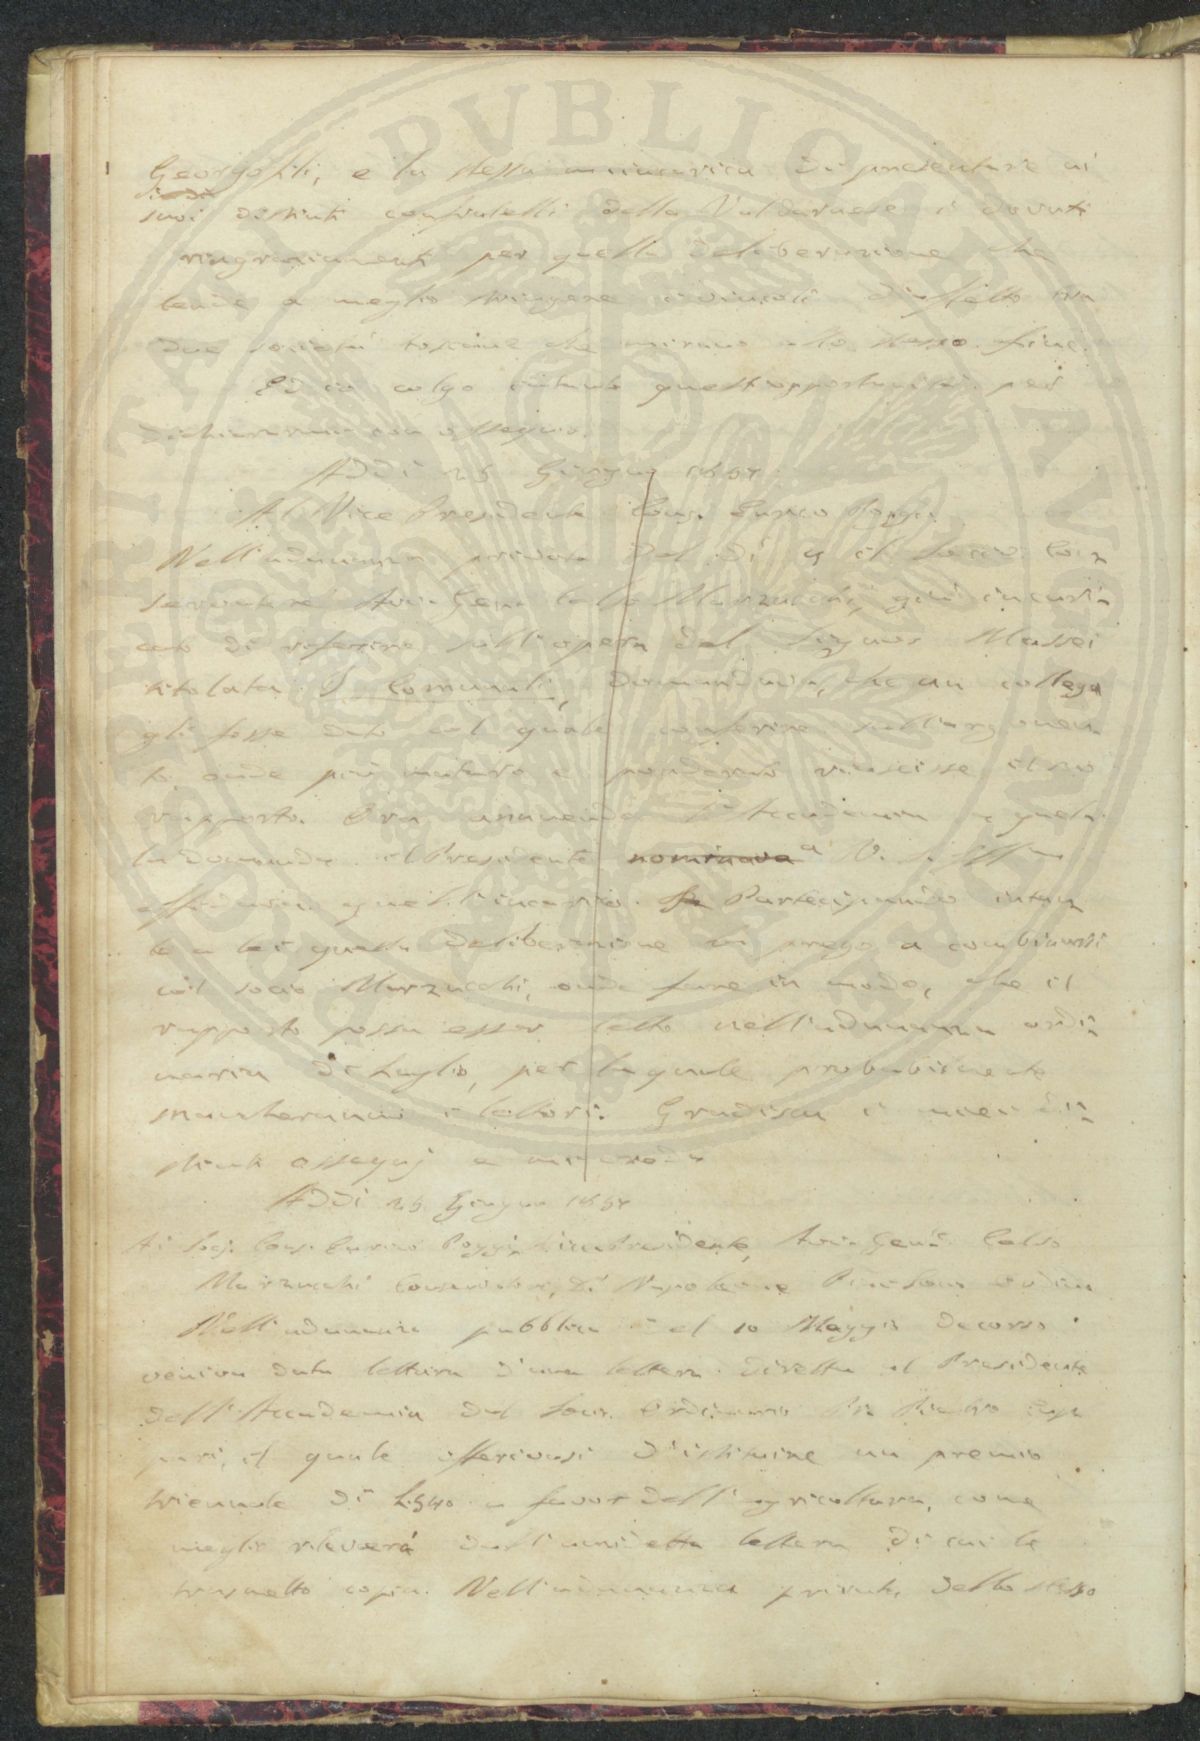 Georgofili, e la stessa m'incarica di presentare ai
suoi distinti confratelli della Valdarnese i dovuti
ringraziamenti per quella deliberazione che
tende a meglio stringere i vincoli d'affetto tra
due società toscane che mirano allo stesso fine.
Ed io colgo intanto quest'opportunità per
dichiararmi con ossequio.
Addì 25 Giugno 1857
Al Vice Presidente Cons. Enrico Poggi
Nell'adunanza privata del dì 9 il socio Con
servatore Avv. Gen. Celso Marzucchi, già incari
cato di riferire sull'opera del Signor Massei
titolata I Comunali, domandava, che un collega
gli fosse dato col quale conferire sull'argomen
to, onde più maturo e ponderato riuscisse il suo
rapporto. Ora annuendo l'Accademia a quel
la domanda il Presidente nominava a V. S. Ill
affidava quell'incarico. Partecipando intan
to a lei quella deliberazione la prego a combinarsi
col socio Marzucchi, onde fare in modo, che il
rapporto possa esser letto nell'adunanza ordi
naria di Luglio, per la quale probabilmente
mancheranno i lettori. Gradisca i miei di
stinti ossequj e mi creda
Addì 25 Giugno 1857
Ai Socj Cons. Enrico Poggi Vice Presidente, Avv. Gen. Celso
Marzucchi Conservatore, D. Napoleone Pini Socio Ordin
Nell'adunanza pubblica del 10 Maggio decorso
veniva data lettura d'una lettera diretta al Presidente
dell'Accademia dal Socio Ordinario Pietro Cup
pari, il quale offerivasi d'istituire un premio
triennale di L. 540 a favor dell'agricoltura, come
meglio rileverà dall'anzidetta lettera di cui le
trasmetto copia. Nell'adunanza privata dello stesso